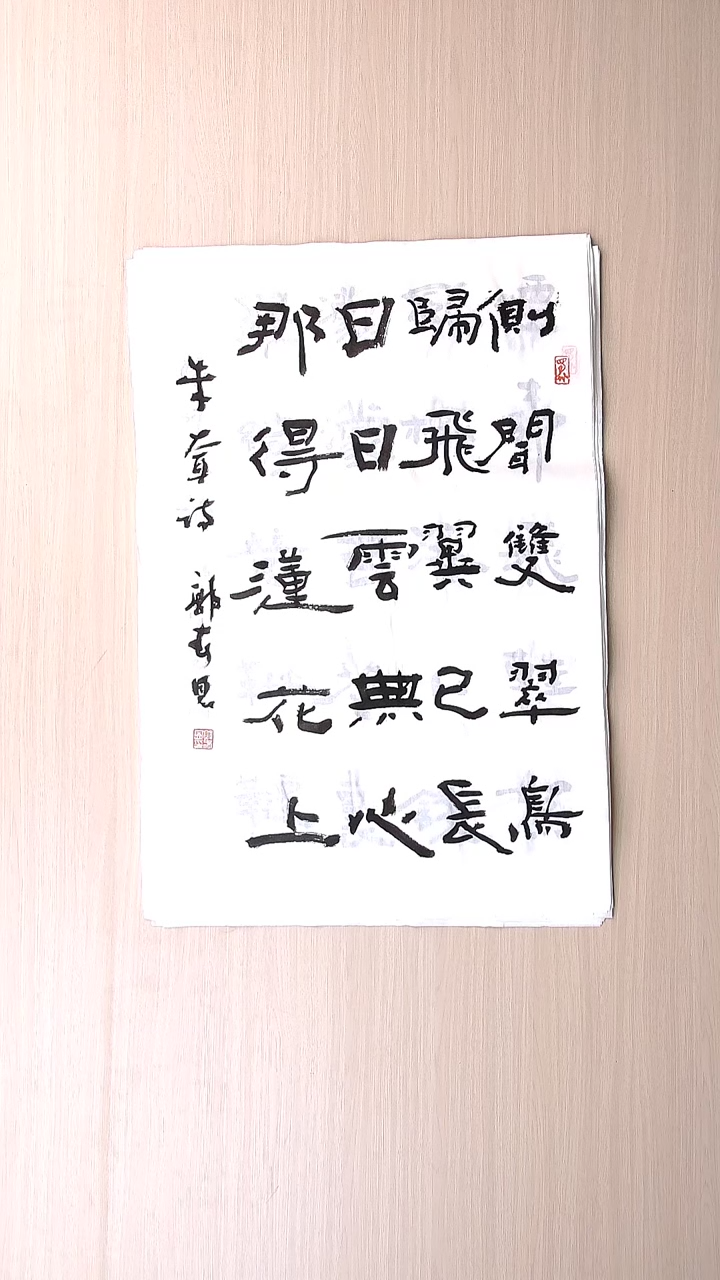 側聞雙翠鳥
歸飛翼已長
日日雲無心
那得蓮花上
朱耷詩